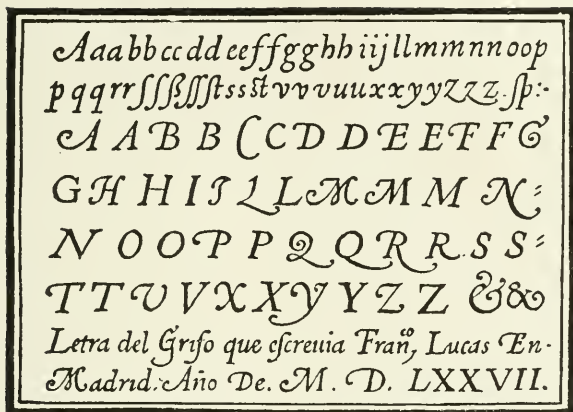 Aaabbccddeeffgghhiijllmmnnoop
pqqrrſſſßſſſtssstvvvuuxxyyzzz.ſp:-
A A B B C C D D E E F F G
G H H I I L L M M M N:
N O O P P Q Q R R. S S:
T T V V X X Y Y Z Z & &
Letra del Griſo que eſcreuia Fran.co Lucas En-
Madrid. Año De. M. D. LXXVII.